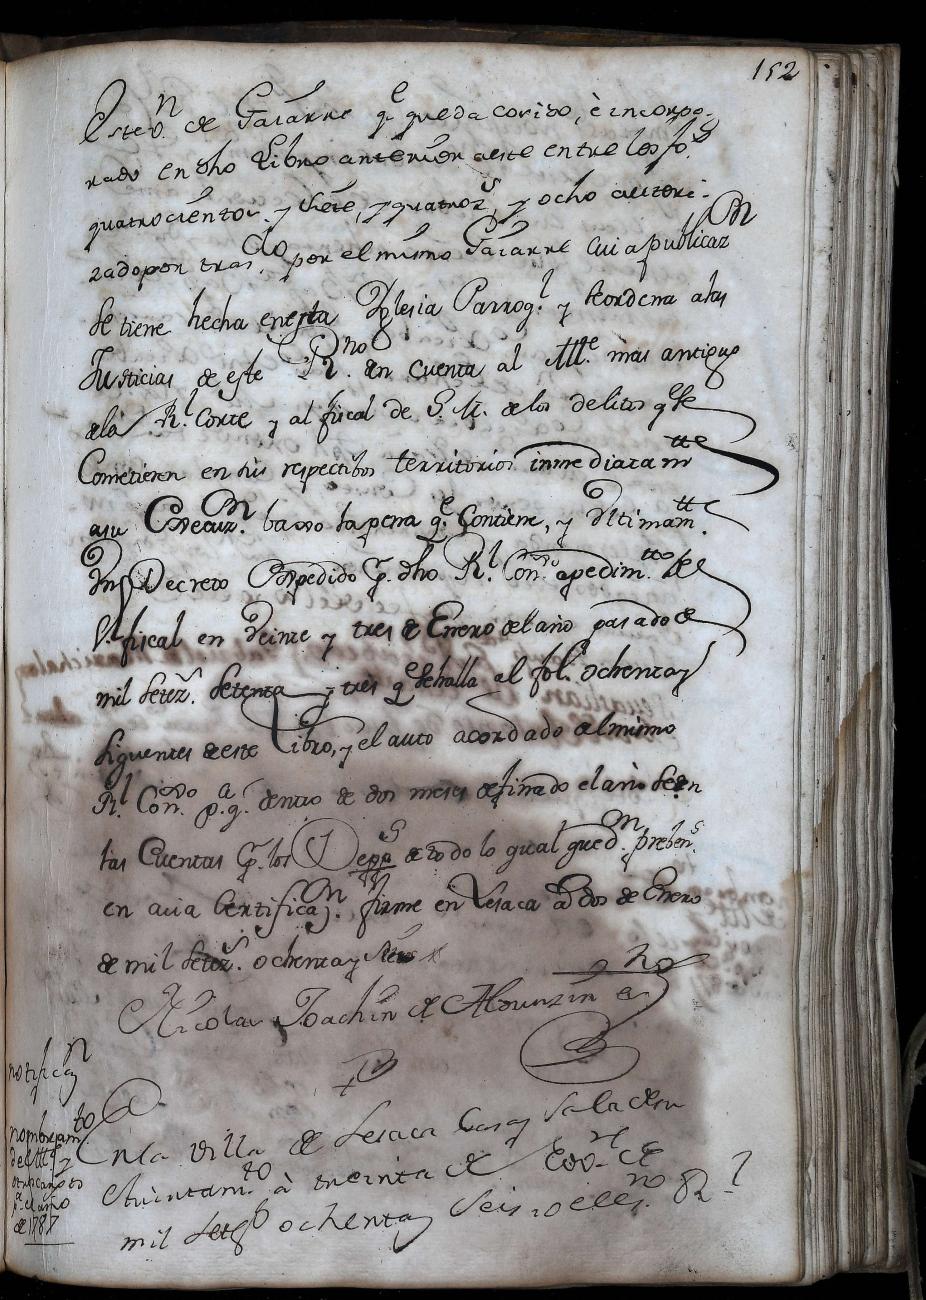 152
Estev.n de Gaiarre q.e queda cosido, è incorpo-
rado en dho Libro anterior a este entre los fo.s
quatrocientos y siete, y quatroz.s y ocho autori-
zado por tras.do por el mismo Gaiarre cuia publicaz.n
se tiene hecha en esta Yglesia Parroq.l y se ordena a las
Justicias de este R.no den cuenta al Alle. mas antiguo
de la R.l Corte y al fiscal de S. M. de los delitos q.e se
Cometieren en sus respectibos territorios inmediatam.tte
a su Execuz.n baxo la pena q.e Contiene, y Vltimam.tte
Vn Decreto Expedido p.r dho R.l Con.o a pedim.tto del
S.r fiscal en Veinte y tres de Enero del año pasado de
mil setez.s setenta y tres q.e se halla al fol. ochenta y
siguentes de este Libro, y el auto acordado del mismo
R.l Con.o p.a q. dentro de dos meses de finado el año se den
las Cuentas p.r los Depp.s de todo lo qual qued.n preben.s
en cuia Certificaz.n firme en Lesaca a dos de Enero
de mil setez.s ochenta y seis
Nicolas Joachin de Alduncin es.no
notificaz.n
y
nombram.to
del Alle. y
otros cargos
p.a el año
de 1787
En la villa de Lesaca Casa y Sala de su
Aiuntam.to à treinta de
mil setez.s ochenta y Seis